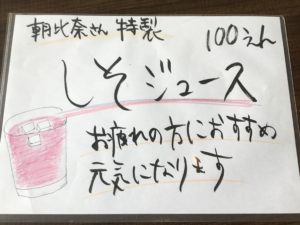 朝比奈さん 特製 100えん
しそジュース
お疲れの方におすすめ
元気になります